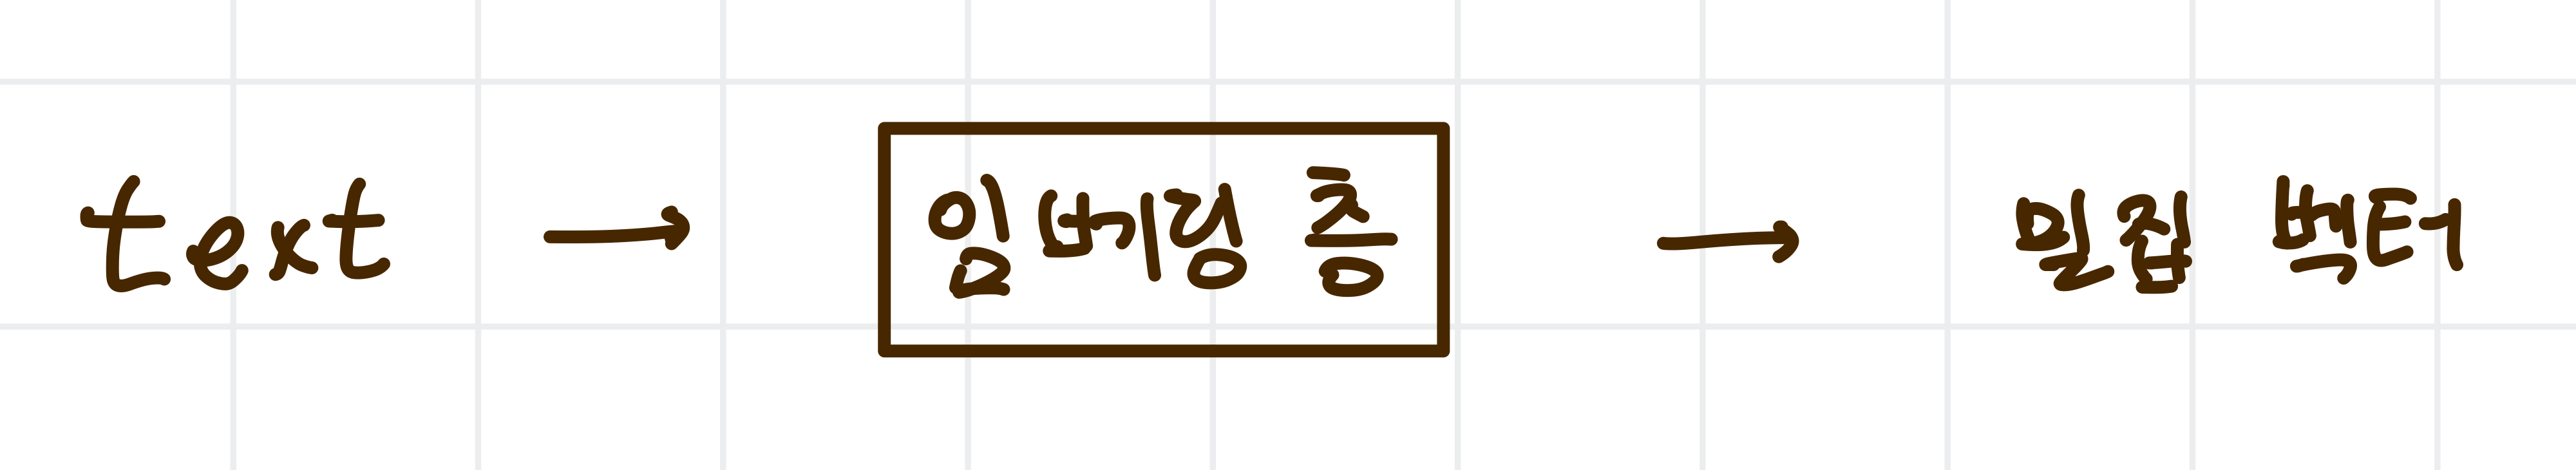 text → 임베딩 층 → 밀집 벡터